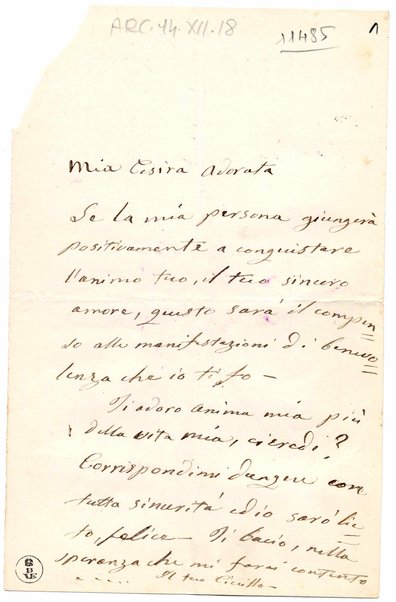 ARC.44.XII.18
11485
1
Mia Cisira Adorata
Se la mia persona giungerà
positivamente a conquistare
l'animo tuo, il tuo sincero
amore, questo sarà il compen=
so alle manifestazioni di benevo=
lenza che io ti fo —
Ti adoro anima mia più
della vita mia, ci credi?
Corrispondimi dunque con
tutta sincerità ed io sarò lie=
to, felice — Ti bacio, nella
speranza che mi farai contento
Il tuo